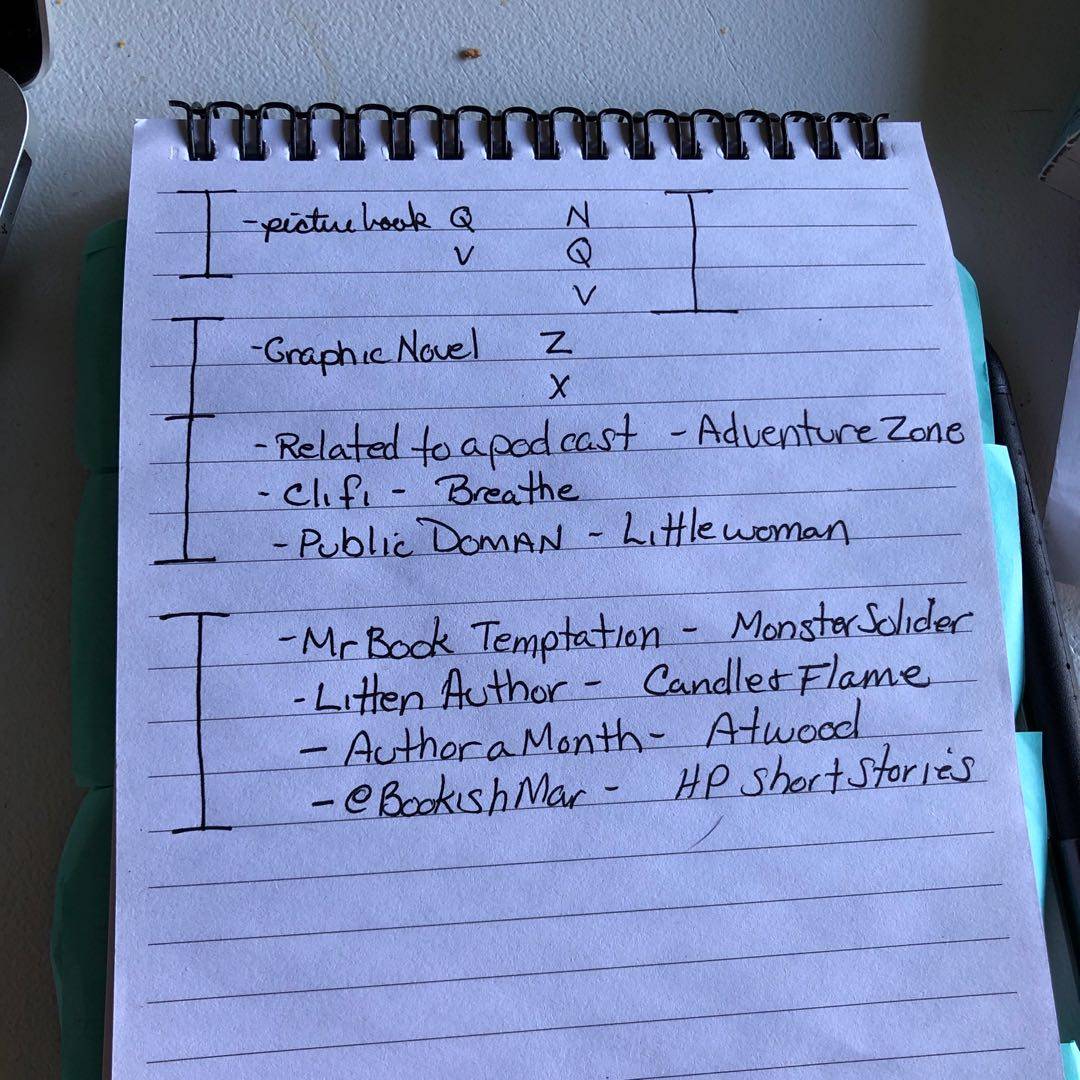 - picturebook Q N
V Q
V
- Graphic Novel Z
X
- Related to a podcast - Adventure Zone
- Cli fi - Breathe
- Public DOMAN - Little woman
- Mr Book Temptation - Monster Solider
- Litten Author - Candle + Flame
- Author a Month - Atwood
- @BookishMar - HP short stories